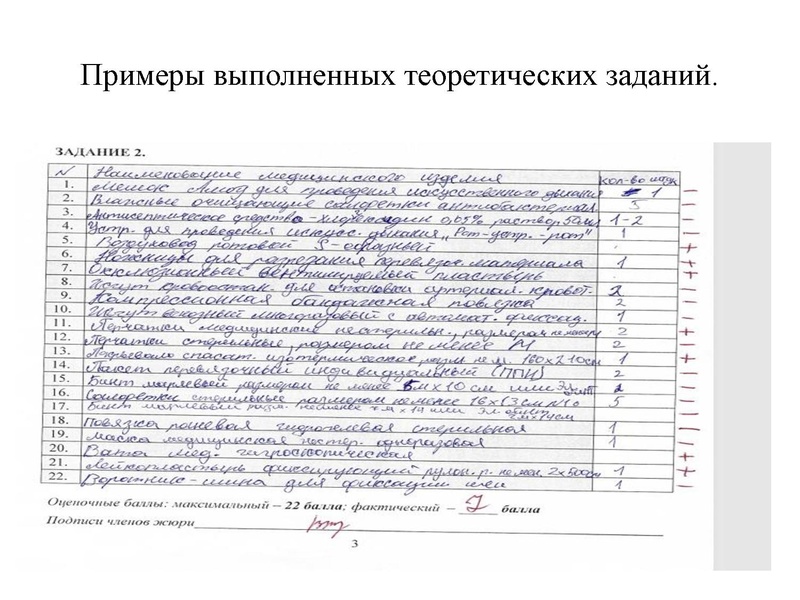 Примеры выполненных теоретических заданий.
ЗАДАНИЕ 2.
N Наименование медицинского изделия кол-во штук
1. Мешок Амбу для проведения искусственного дыхания 1 –
2. Влажные очищающие салфетки антибактериал. 3 –
3. Антисептическое средство - хлоргексидин 0,05% раствор 50мл 1-2 –
4. Устр. для проведения искус. дыхания "Рот-устр.-рот" 1 –
5. Воздуховод ротовой S-образный +
6. Ножницы для разрезания перевязоч. материала 1 +
7. Окклюзионный вентилируемый пластырь –
8. Жгут кровоостан. для остановки артериал. кровот. 2 –
9. Компрессионная бандажная повязка 2 –
10. Жгут венозный многоразовый с автомат. фиксац. 1 –
11. Перчатки медицинские нестерильн., размером не менее 2 +
12. Перчатки стерильные, размером не менее M 2 –
13. Покрывало спасат. изотермическое разм. не м. 160x210см 1 +
14. Пакет перевязочный индивидуальный (ППИ) 2 –
15. Бинт марлевый размером не менее 5м x 10 см или 2 –
16. Салфетки стерильные размером не менее 16x13см N10 5 –
17. Бинт марлевый разм. не менее 7м x 14 или –
18. Повязка раневая гидрогелевая стерильная 1 –
19. Маска медицинская нестер. одноразовая 1 –
20. Вата мед. гигроскопическая +
21. Лейкопластырь фиксирующий рулон. р. не мен. 2x500см 1 +
22. Воротник-шина для фиксации шеи 1 –
Оценочные баллы: максимальный – 22 балла; фактический – 7 балла
Подписи членов жюри
3